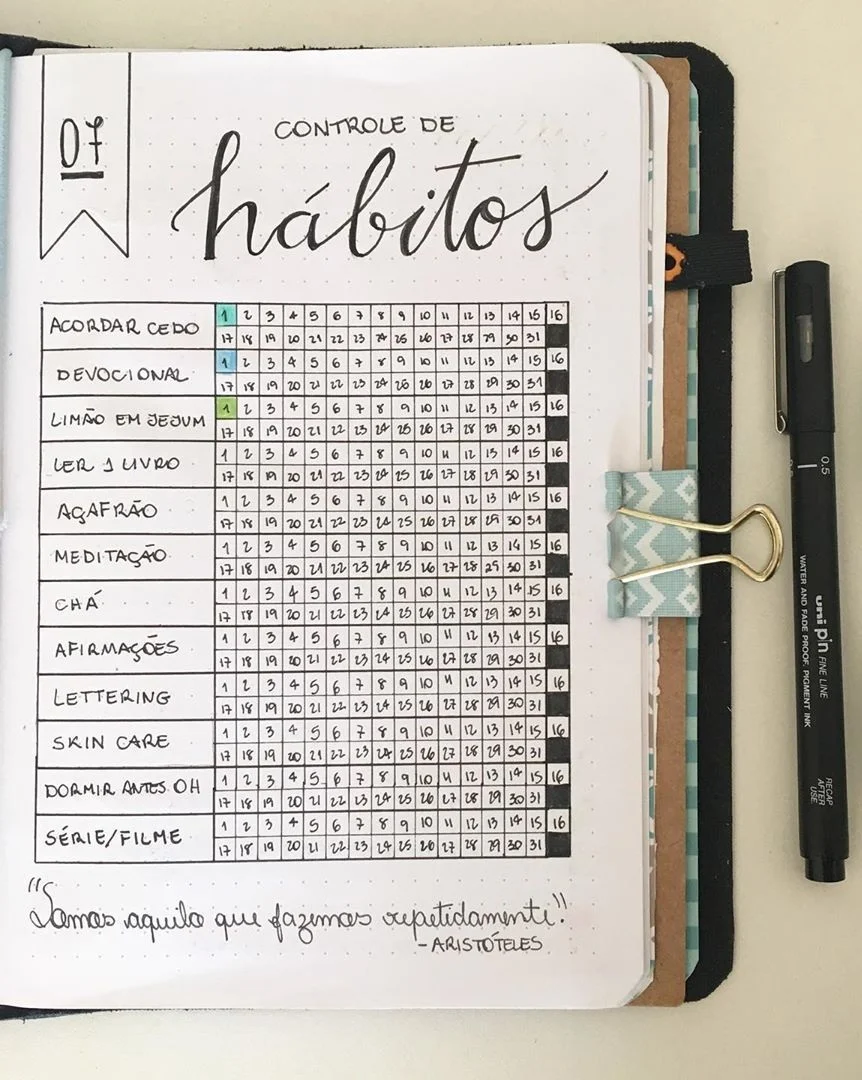 07
CONTROLE DE
hábitos
ACORDAR CEDO
1 2 3 4 5 6 7 8 9 10 11 12 13 14 15 16
17 18 19 20 21 22 23 24 25 26 27 28 29 30 31
DEVOCIONAL
1 2 3 4 5 6 7 8 9 10 11 12 13 14 15 16
17 18 19 20 21 22 23 24 26 26 27 28 29 30 31
LIMÃO EM JEJUM
1 2 3 4 5 6 7 8 9 10 11 12 13 14 15 16
17 18 19 20 21 22 23 24 25 26 27 28 29 30 31
LER 1 LIVRO
1 2 3 4 5 6 7 8 9 10 11 12 13 14 15 16
17 18 19 20 21 22 23 24 25 26 27 28 29 30 31
AÇAFRÃO
1 2 3 4 5 6 7 8 9 10 11 12 13 14 15 16
17 18 19 20 21 22 23 24 25 26 27 28 29 30 31
MEDITAÇÃO
1 2 3 4 5 6 7 8 9 10 11 12 13 14 15 16
17 18 19 20 21 22 23 24 25 26 27 28 29 30 31
CHÁ
1 2 3 4 5 6 7 8 9 10 11 12 13 14 15 16
17 18 19 20 21 22 23 24 25 26 27 28 29 30 31
AFIRMAÇÕES
1 2 3 4 5 6 7 8 9 10 11 12 13 14 15 16
17 18 19 20 21 22 23 24 25 26 27 28 29 30 31
LETTERING
1 2 3 4 5 6 7 8 9 10 11 12 13 14 15 16
17 18 19 20 21 22 23 24 25 26 27 28 29 30 31
SKIN CARE
1 2 3 4 5 6 7 8 9 10 11 12 13 14 15 16
17 18 19 20 21 22 23 24 25 26 27 28 29 30 31
DORMIR ANTES 0H
1 2 3 4 5 6 7 8 9 10 11 12 13 14 15 16
17 18 19 20 21 22 23 24 25 26 27 28 29 30 31
SÉRIE/FILME
1 2 3 4 5 6 7 8 9 10 11 12 13 14 15 16
17 18 19 20 21 22 23 24 25 26 27 28 29 30 31
"Somos aquilo que fazemos repetidamente."
-ARISTÓTELES
0.5
uni pin FINE LINE
WATER AND FADE PROOF, PIGMENT INK
RECAP
AFTER
USE